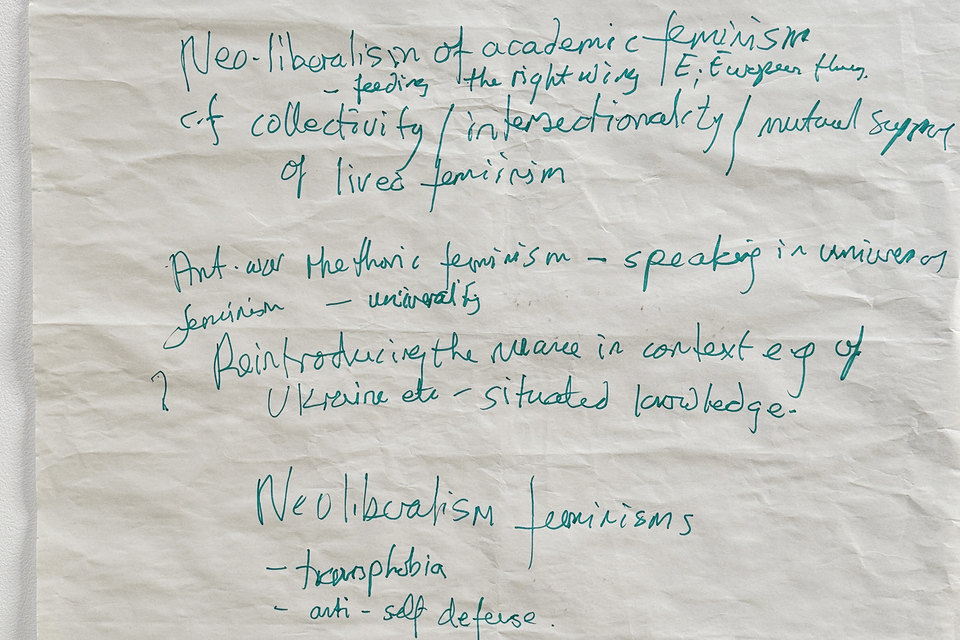 Neo-liberalism of academic feminism
- feeding the right wing / E, European
c.f collectivity / intersectionality / mutual support
of lived feminism
Anti-war rhethoric feminism - speaking in universal
feminism - universality
? Reintroducing the nuance in context e.g of
Ukraine etc - situated knowledge.
Neoliberalism feminisms
- transphobia
- anti-self defense.